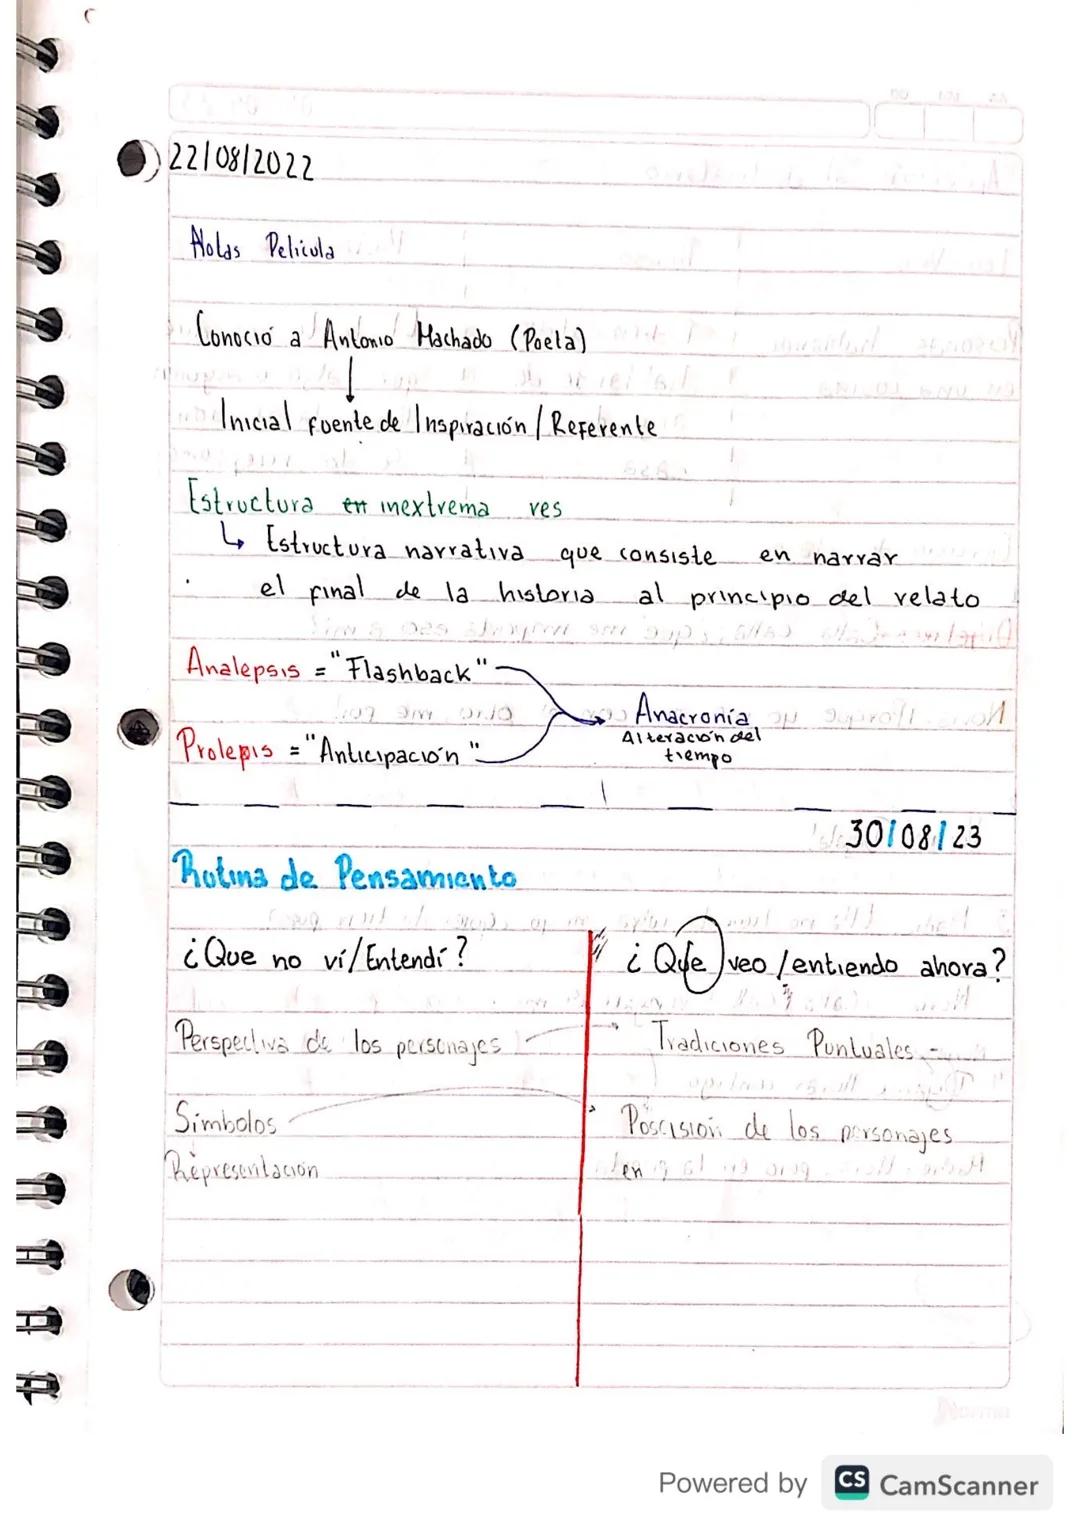 22/08/2022
Notas Pelicula
Conoció a Antonio Machado (Poeta)
Inicial fuente de Inspiración / Referente
Estructura en inextrema res
↳ Estructura narrativa que consiste en narrar
el final de la historia al principio del relato
Analepsis = "Flashback"
Anacronía
Alteración del
tiempo
Prolepis = "Anticipación"
30/08/23
Rutina de Pensamiento
¿Que no ví/Entendí? ¿Que veo/entiendo ahora?
Perspectiva de los personajes Tradiciones Puntuales
Simbolos Poscisión de los personajes
Representación en
Norma
Powered by CS CamScanner